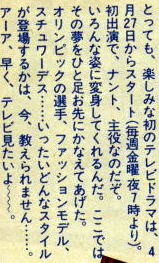 とっても、楽しみな初のテレビドラマは、4
月27日からスタート(毎週金曜夜7時より)。
初出演で、ナント、主役なのだぞ。
いろんな姿に変身してくれるんだ。ここでは
その夢をひと足お先にかなえてあげた。
オリンピックの選手、ファッションモデル、
スチュワーデス……いったいどんなスタイル
が登場するかは、今、教えられません……。
アーア、早く、テレビ見たいよ〜〜。